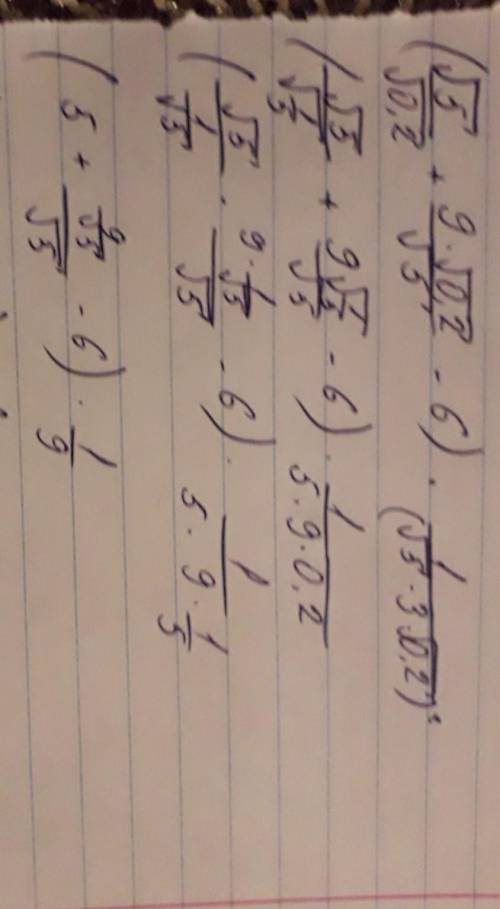 (√5/√0,2 + 9·√0,2/√5 - 6) · 1/(√5·3√0,2)²
(√5/√(1/5) + 9√(1/5)/√5 - 6) · 1/5·9·0,2
(√5/(1/√5) · 9·(1/√5)/√5 - 6) · 1/(5·9·(1/5))
(5 + (9/√5)/√5 - 6) · 1/9